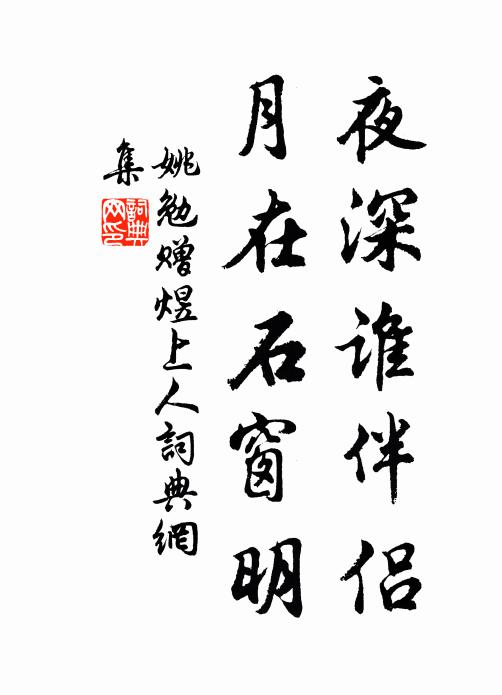 夜深谁伴侣
月在石窗明
姚勉赠煜上人詞典網
集
詞典
网印